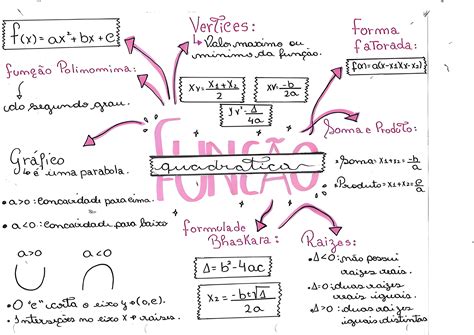 f(x)=ax²+bx+c
função Polinomima:
↳do segundo grau.
Vertices:
↳ Valor maximo ou
minimo da função.
Xv= x₁+x₂/2
Xv= -b/2a
Yv= -Δ/4a
forma
faTorada:
f(x)=a(x-x₁)(x-x₂)
Função
quadratica
Soma e Produto:
•Soma: x₁+x₂= -b/a
•Produto=x₁+x₂= c/a
Gráfico
↳é uma parabola.
•a>0: concavidade para cima.
•a<0: concavidade para baixo
a>0 a<0
•O "c" corta o eixo y→(0,c).
•Interseções no eixo x→raizes.
formula de
Bhaskara:
Δ=b²-4ac
X₂= -b±√Δ/2a
Raizes:
•Δ<0: não possui
raizes reais.
Δ=0: duas raizes
reais iguais.
•Δ>0: duas raizes
iguais distintas